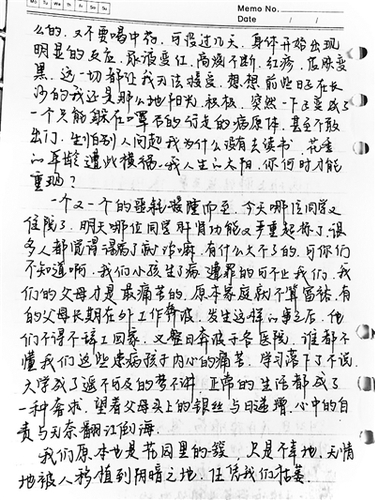 Mo Tu We Th Fr Sa Su
Memo No.
Date / /
么的,又不要喝中药,可没过几天,身体开始出现
明显的反应,尿液变红,高烧不断,红疹,皮肤变
黑,这一切都让我无法接受,想想前些日子在长
沙的我还是那么地阳光,积极,突然一下子变成了
一个只能躲在口罩后的行走的病原体,甚至不敢
出门,生怕别人问起我为什么没有去读书,花季
的年龄遭此横祸,我人生的太阳,你何时才能
重现?
一个又一个的噩耗接踵而至,今天哪位同学又
住院了,明天哪位同学肝肾功能又严重超标了,很
多人都觉得得病了就治嘛,有什么大不了的,可你们
不知道啊,我们小孩生了病遭罪的可不止我们,我
们的父母才是最痛苦的,原本家庭就不算富裕,有
的父母长期在外工作奔波,发生这样的事之后,他
们不得不辞工回家,又整日奔波于各医院,谁都不
懂我们这些患病孩子内心的痛苦,学习落下了不说,
大学成了遥不可及的梦不讲,正常的生活都成了
一种奢求,望着父母头上的银丝与日递增,心中的自
责与无奈翻江倒海。
我们原本也是花园里的 ,只是不幸地,无情
地被人移植到阴暗之地,任凭我们枯萎。